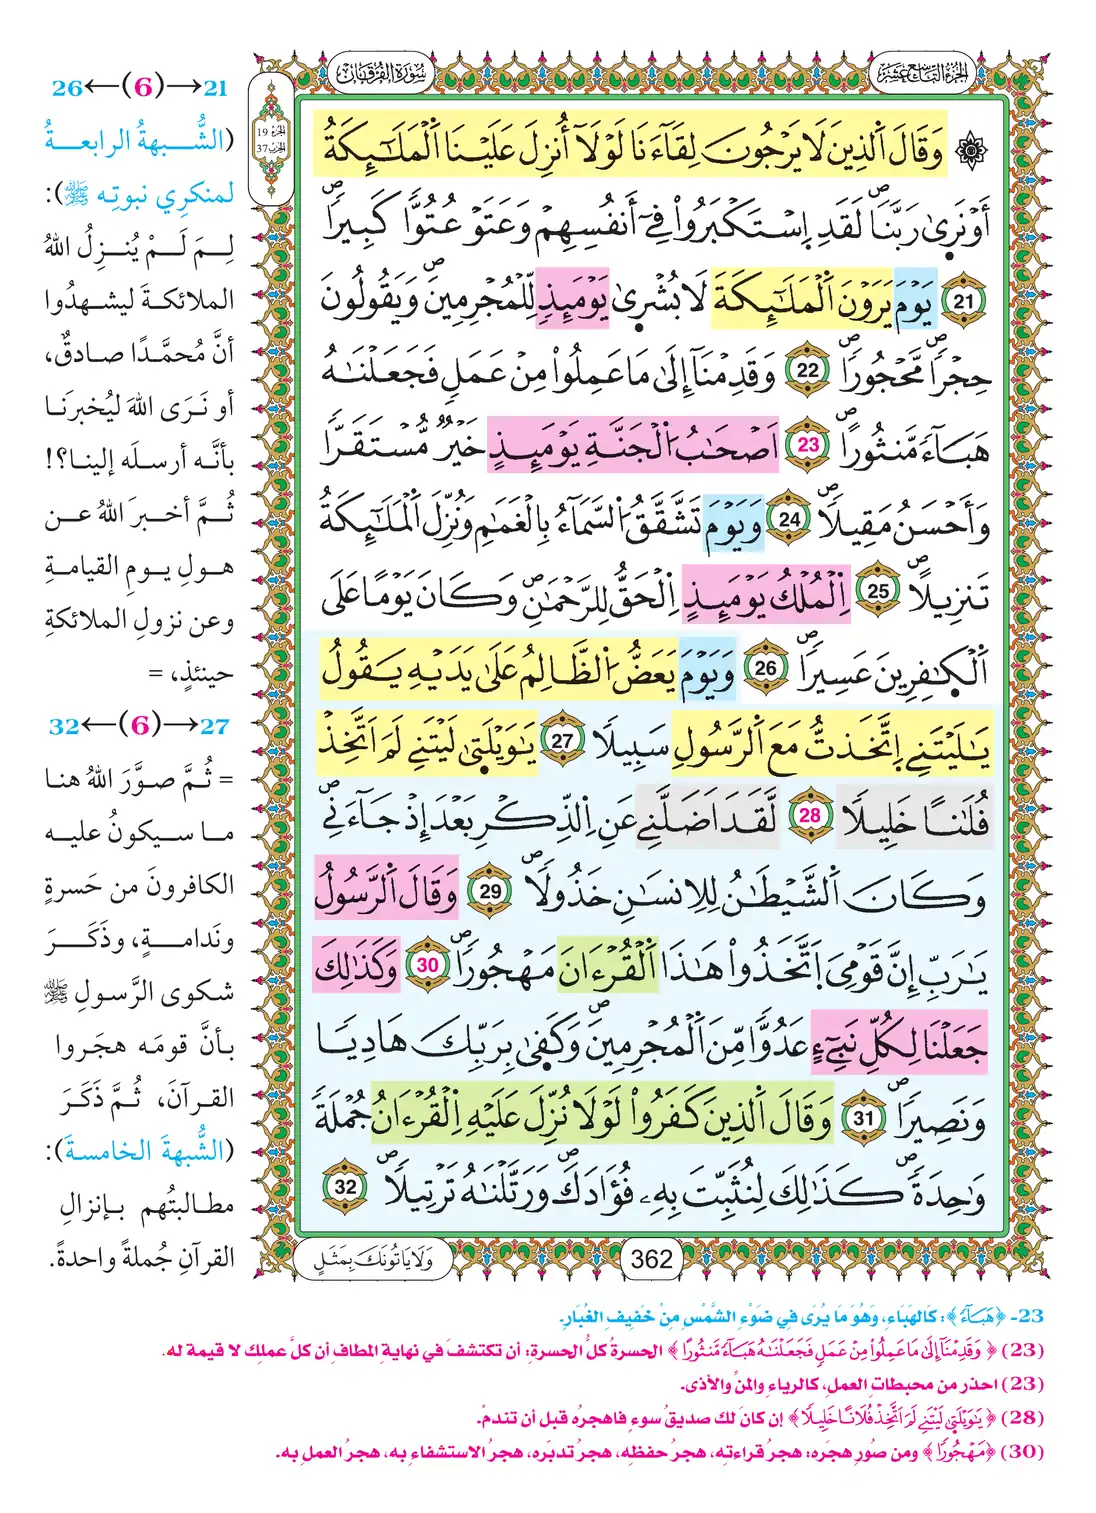 الجزء التاسع عشر
سورة الفرقان
الجزء 19
الحزب 37
وَقَالَ اَ۬لذِينَ لَا يَرْجُونَ لِقَآءَنَا لَوْلَآ أُنزِلَ عَلَيْنَا اَ۬لْمَلَٰٓئِكَةُ
أَوْ نَر۪يٰ رَبَّنَاۖ لَقَدِ اِ۪سْتَكْبَرُواْ فِےٓ أَنفُسِهِمْ وَعَتَوْ عُتُوّاٗ كَبِيراٗۖ
21 يَوْمَ يَرَوْنَ اَ۬لْمَلَٰٓئِكَةَ لَا بُشْر۪يٰ يَوْمَئِذٖ لِّلْمُجْرِمِينَۖ وَيَقُولُونَ
حِجْراٗۖ مَّحْجُوراٗۖ 22 وَقَدِمْنَآ إِلَىٰ مَا عَمِلُواْ مِنْ عَمَلٖ فَجَعَلْنَٰهُ
هَبَآءٗ مَّنثُوراٗۖ 23 اَصْحَٰبُ اُ۬لْجَنَّةِ يَوْمَئِذٍ خَيْرٞ مُّسْتَقَرّاٗ
وَأَحْسَنُ مَقِيلاٗۖ 24 وَيَوْمَ تَشَّقَّقُ اُ۬لسَّمَآءُ بِالْغَمَٰمِ وَنُزِّلَ اَ۬لْمَلَٰٓئِكَةُ
تَنزِيلاًۖ 25 اِ۬لْمُلْكُ يَوْمَئِذٍ اِ۬لْحَقُّ لِلرَّحْمَٰنِۖ وَكَانَ يَوْماً عَلَى
اَ۬لْكٰ۪فِرِينَ عَسِيراٗۖ 26 وَيَوْمَ يَعَضُّ اُ۬لظَّالِمُ عَلَىٰ يَدَيْهِ يَقُولُ
يَٰلَيْتَنِے اِ۪تَّخَذتُّ مَعَ اَ۬لرَّسُولِ سَبِيلاٗ 27 يَٰوَيْلَت۪يٰ لَيْتَنِے لَمَ اَتَّخِذْ
فُلَٰناً خَلِيلاٗ 28 لَّقَدَ اَضَلَّنِے عَنِ اِ۬لذِّكْرِ بَعْدَ إِذْ جَآءَنِےۖ
وَكَانَ اَ۬لشَّيْطَٰنُ لِلِانسَٰنِ خَذُولاٗۖ 29 وَقَالَ اَ۬لرَّسُولُ
يَٰرَبِّ إِنَّ قَوْمِيَ اَ۪تَّخَذُواْ هَٰذَا اَ۬لْقُرْءَانَ مَهْجُوراٗۖ 30 وَكَذَٰلِكَ
جَعَلْنَا لِكُلِّ نَبِےٓءٍ عَدُوّاٗ مِّنَ اَ۬لْمُجْرِمِينَۖ وَكَف۪يٰ بِرَبِّكَ هَادِياٗ
وَنَصِيراٗۖ 31 وَقَالَ اَ۬لذِينَ كَفَرُواْ لَوْلَا نُزِّلَ عَلَيْهِ اِ۬لْقُرْءَانُ جُمْلَةٗ
وَٰحِدَةٗۖ كَذَٰلِكَ لِنُثَبِّتَ بِهِۦ فُؤَادَكَۖ وَرَتَّلْنَٰهُ تَرْتِيلاٗۖ 32
362
وَلَا يَاتُونَكَ بِمَثَلٍ
21→(6)←26
(الشُّبهةُ الرابعةُ
لمنكرِي نبوتِه ﷺ):
لِمَ لَمْ يُنزِلُ اللهُ
الملائكةَ ليشهدُوا
أنَّ مُحمَّدًا صادقٌ،
أو نَرَى اللهَ ليُخبرَنَا
بأنَّه أرسلَه إلينا؟!
ثُمَّ أخبرَ اللهُ عن
هولِ يومِ القيامةِ
وعن نزولِ الملائكةِ
حينئذٍ، =
27→(6)←32
= ثُمَّ صوَّرَ اللهُ هنا
ما سيكونُ عليه
الكافرونَ من حَسرةٍ
ونَدامةٍ، وذَكَرَ
شكوى الرَّسولِ ﷺ
بأنَّ قومَه هجَروا
القرآنَ، ثُمَّ ذَكَرَ
(الشُّبهةَ الخامسةَ):
مطالبتُهم بإنزالِ
القرآنِ جُملةً واحدةً.
23- ﴿هَبَآءٗ﴾: كَالهَبَاءِ، وَهُوَ مَا يُرَى فِي ضَوْءِ الشَّمْسِ مِنْ خَفِيفِ الغُبَارِ.
(23) ﴿وَقَدِمْنَآ إِلَىٰ مَا عَمِلُواْ مِنْ عَمَلٖ فَجَعَلْنَٰهُ هَبَآءٗ مَّنثُوراٗ﴾ الحسرةُ كلُّ الحسرةِ: أن تكتشفَ في نهايةِ المطافِ أن كلَّ عملِك لا قيمة له.
(23) احذر من محبطاتِ العملِ، كالرياءِ والمنِّ والأذى.
(28) ﴿يَٰوَيْلَت۪يٰ لَيْتَنِے لَمَ اَتَّخِذْ فُلَاناً خَلِيلاٗ﴾ إن كانَ لك صديقُ سوءٍ فاهجرهُ قبل أن تندمْ.
(30) ﴿مَهْجُوراٗ﴾ ومن صُورِ هجرَه: هجرُ قراءتِه، هجرُ حفظِه، هجرُ تدبّرِه، هجرُ الاستشفاءِ به، هجرُ العملِ به.